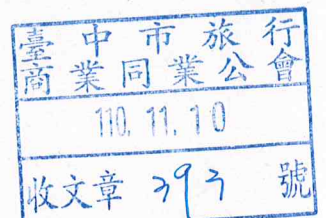 臺中市旅行
商業同業公會
110.11.10
收文章 393 號